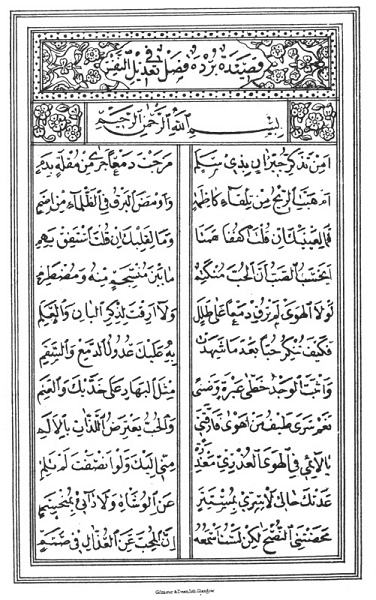 قصيده برده فصل فى تعديل النفس
بِسْمِ اللهِ الرَّحْمٰنِ الرَّحِيْمِ
اَمِنْ تَذَكُّرِ جِيْرَانٍ بِذِيْ سَلَمٍ مَزَجْتَ دَمْعًا جَرٰى مِنْ مُقْلَةٍ بِدَمٍ
اَمْ هَبَّتِ الرِّيْحُ مِنْ تِلْقَاءِ كَاظِمَةٍ وَاَوْمَضَ الْبَرْقُ فِي الظَّلْمَاءِ مِنْ اِضَمٍ
فَمَا لِعَيْنَيْكَ اِنْ قُلْتَ اكْفُفَا هَمَتَا وَمَا لِقَلْبِكَ اِنْ قُلْتَ اسْتَفِقْ يَهِمِ
اَيَحْسَبُ الصَّبُّ اَنَّ الْحُبَّ مُنْكَتِمٌ مَا بَيْنَ مُنْسَجِمٍ مِنْهُ وَمُضْطَرِمِ
لَوْلَا الْهَوٰى لَمْ تُرِقْ دَمْعًا عَلٰى طَلَلٍ وَلَا اَرِقْتَ لِذِكْرِ الْبَانِ وَالْعَلَمِ
فَكَيْفَ تُنْكِرُ حُبًّا بَعْدَ مَا شَهِدَتْ بِهِ عَلَيْكَ عُدُوْلُ الدَّمْعِ وَالسَّقَمِ
وَاَثْبَتَ الْوَجْدُ خَطَّيْ عَبْرَةٍ وَضَنًى مِثْلَ الْبَهَارِ عَلٰى خَدَّيْكَ وَالْعَنَمِ
نَعَمْ سَرٰى طَيْفُ مَنْ اَهْوٰى فَاَرَّقَنِيْ وَالْحُبُّ يَعْتَرِضُ اللَّذَّاتِ بِالْاَلَمِ
يَا لَائِمِيْ فِي الْهَوَى الْعُذْرِيِّ مَعْذِرَةً مِنِّيْ اِلَيْكَ وَلَوْ اَنْصَفْتَ لَمْ تَلُمِ
عَدَتْكَ حَالِيَ لَا سِرِّيْ بِمُسْتَتِرٍ عَنِ الْوُشَاةِ وَلَا دَائِيْ بِمُنْحَسِمِ
مَحَضْتَنِي النُّصْحَ لٰكِنْ لَسْتُ اَسْمَعُهُ اِنَّ الْمُحِبَّ عَنِ الْعُذَّالِ فِيْ صَمَمِ
Gilmour & Dean, Lith. Glasgow